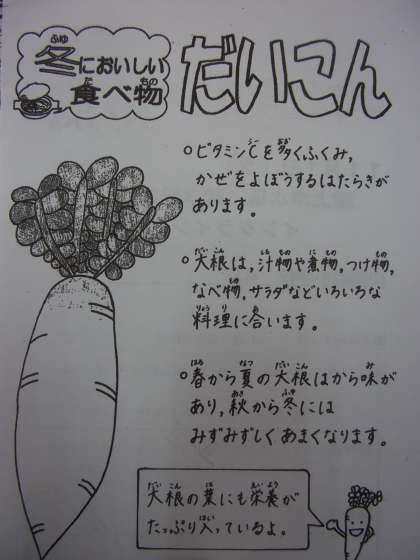 冬においしい
食べ物
だいこん
○ビタミンCを多くふくみ、
かぜをよぼうするはたらきが
あります。
○大根は、汁物や煮物、つけ物、
なべ物、サラダなどいろいろな
料理に合います。
○春から夏の大根はから味が
あり、秋から冬には
みずみずしくあまくなります。
大根の葉にも栄養が
たっぷり入っているよ。